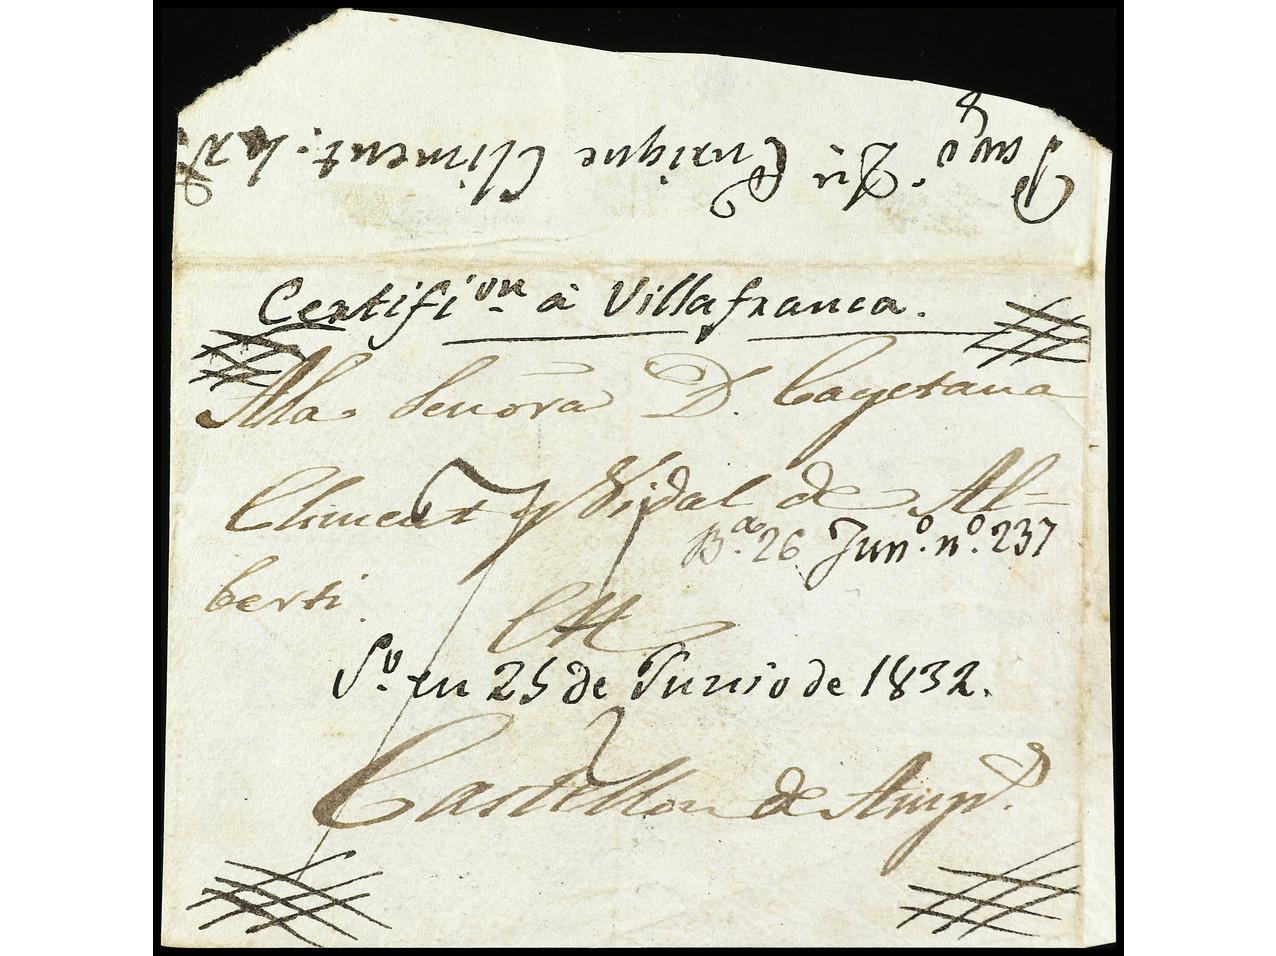 Certifi.on à Villafranca.
A la Señora D. Cayetana
Climent y Vidal de Al=
Ba. 26 Juno. no. 237
berti
So. en 25 de Junio de 1832.
Castellon de Amps.
Dn. Enrique Climent.